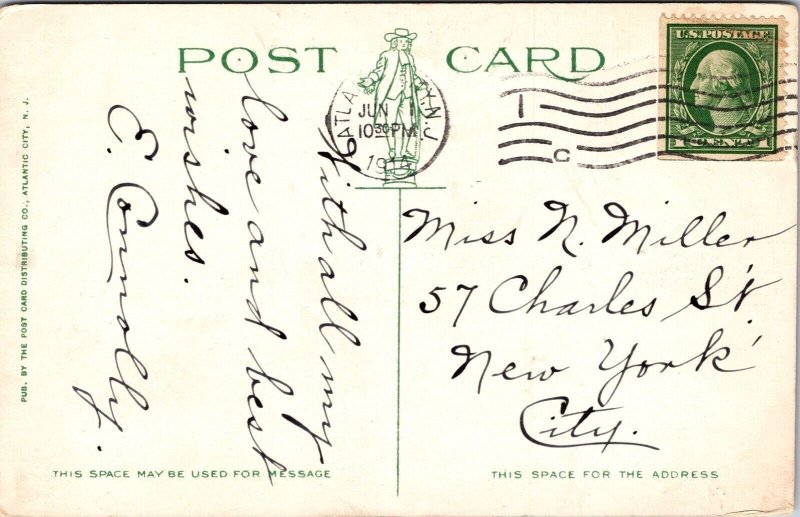 POST CARD
U.S. POSTAGE
JUN
10 30 PM
With all my
love and best
wishes.
E. Connolly.
Miss N. Miller
57 Charles St.
New York
City.
PUB. BY THE POST CARD DISTRIBUTING CO., ATLANTIC CITY, N. J.
THIS SPACE MAY BE USED FOR MESSAGE
THIS SPACE FOR THE ADDRESS